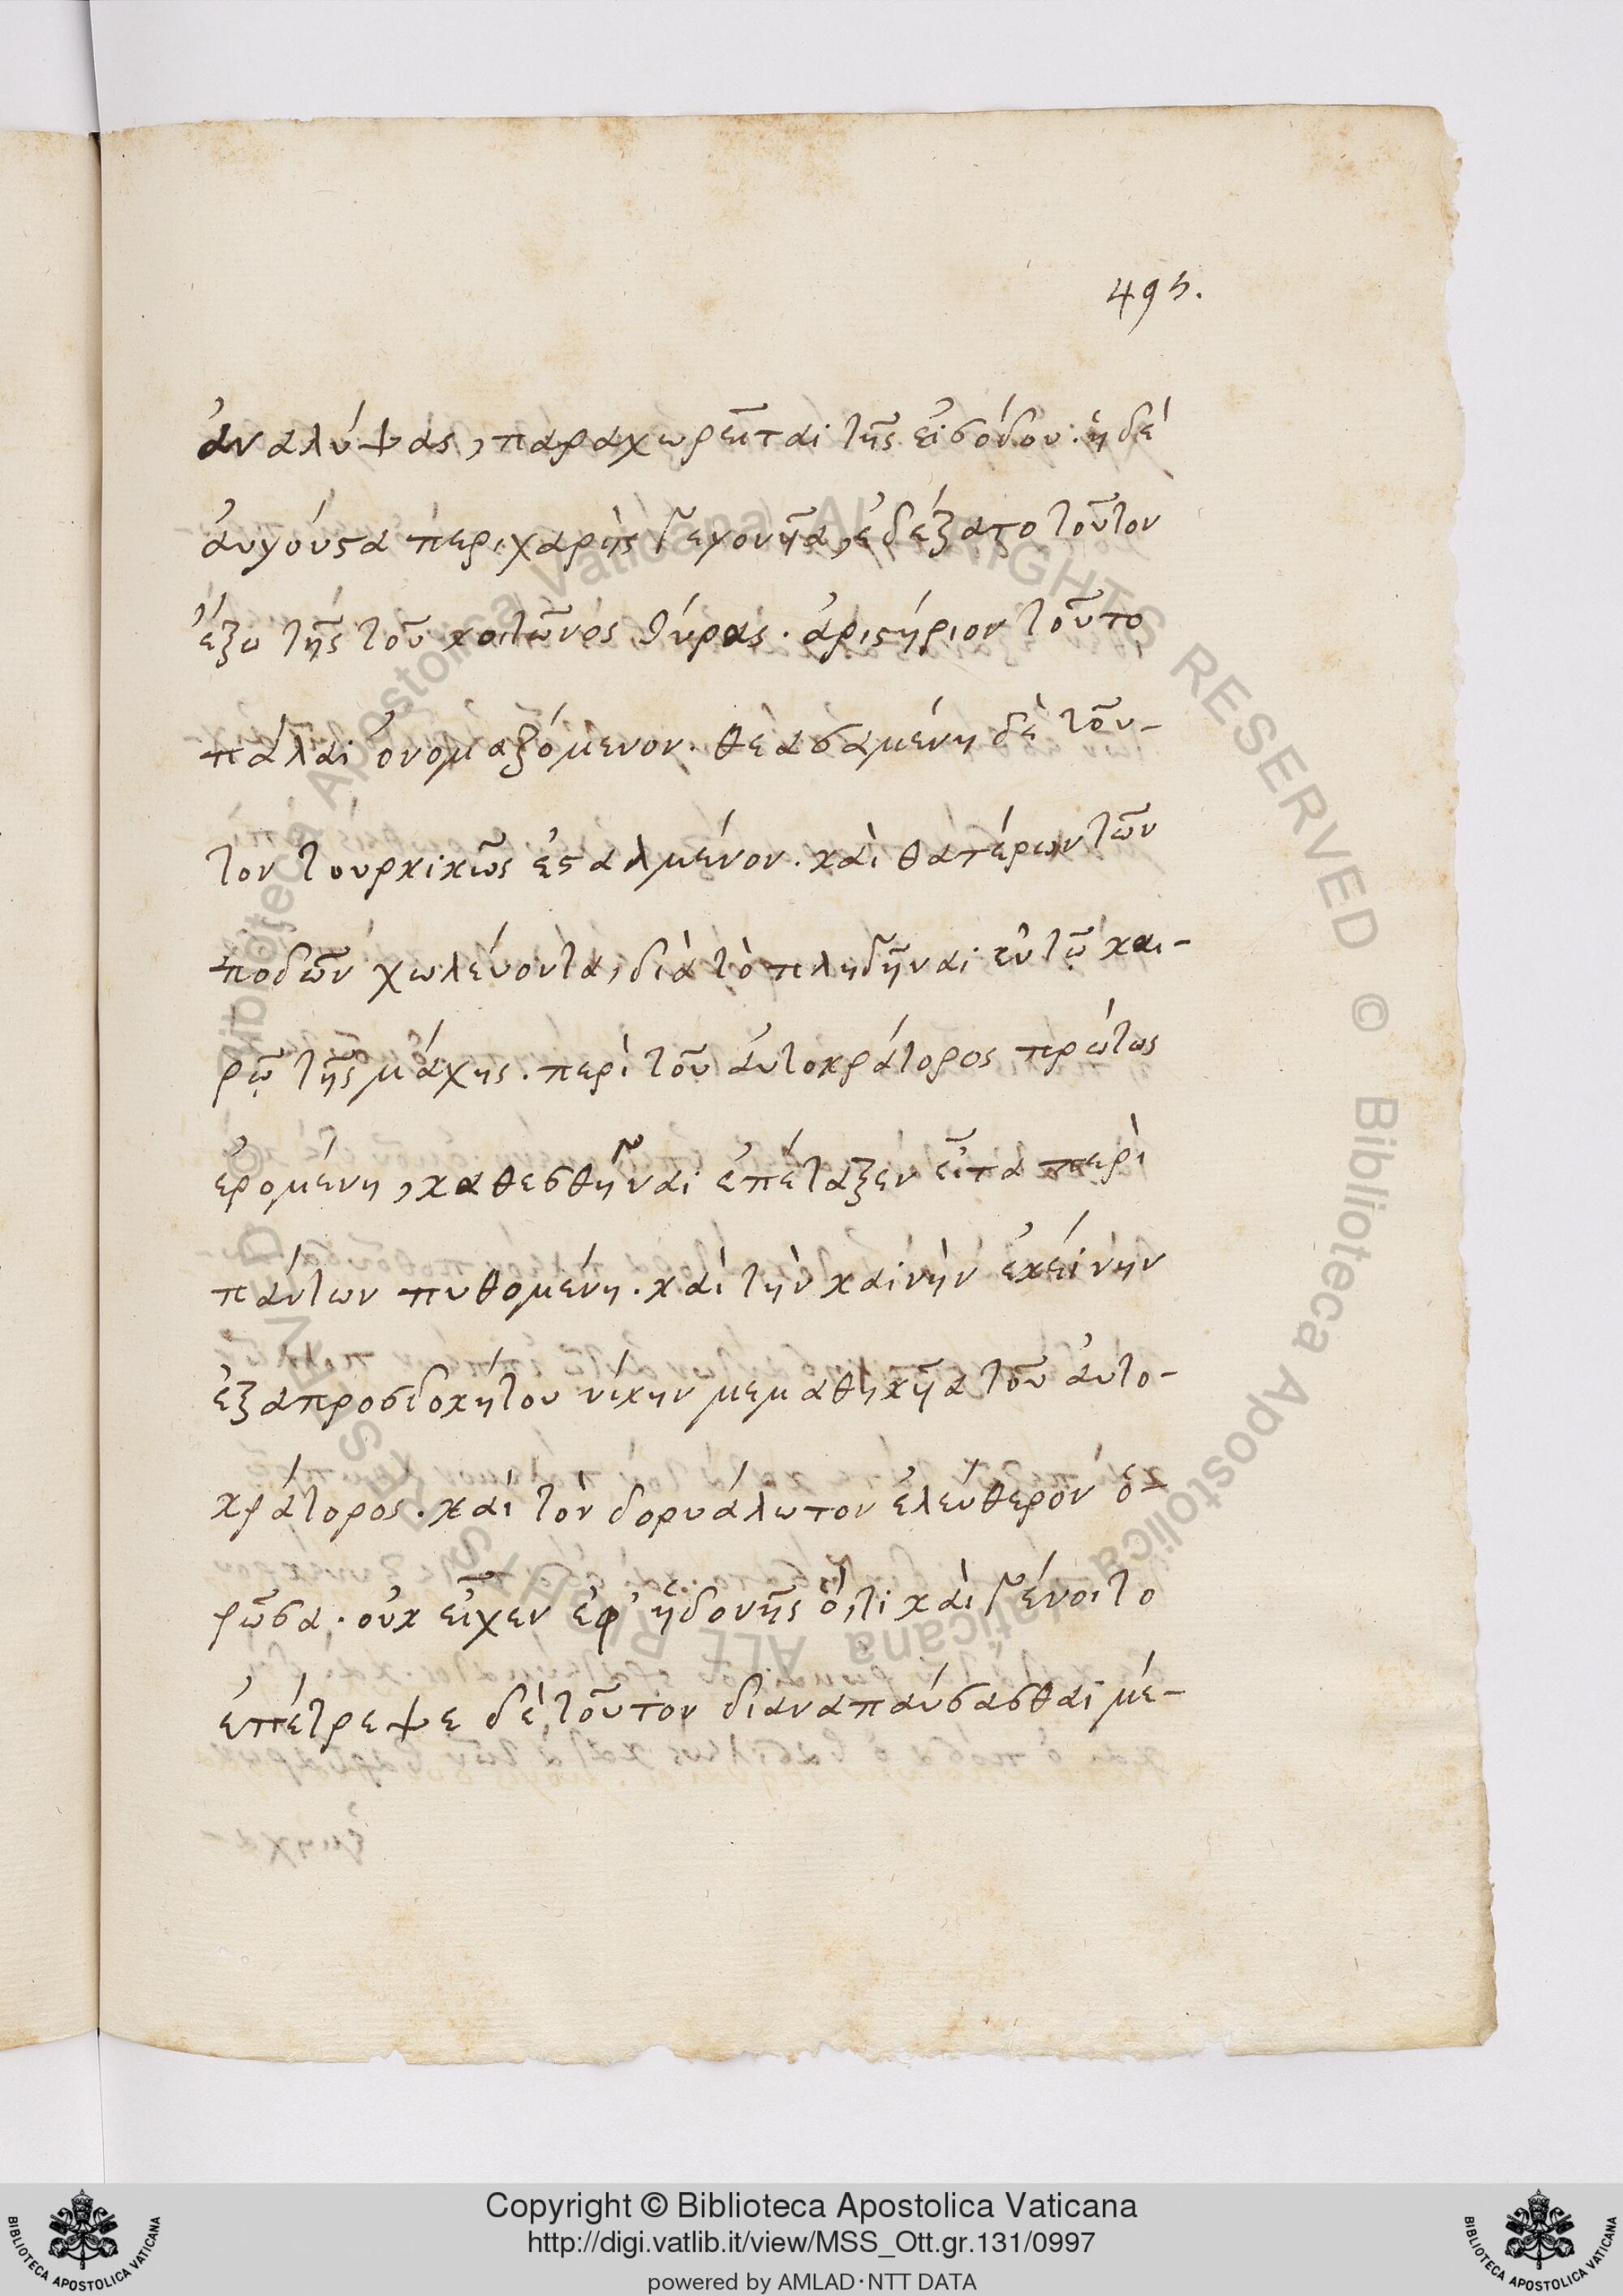 495.
ἀναλύψας, παραχωρεῖται τῆς εἰσόδου· ἡ δὲ
ἀυγούστα περιχαρὴς γεγονῆα, ἐδέξατο τοῦτον
ἔξω τῆς τοῦ κοιτῶνος θύρας. ἀριστήριον τοῦτο
πάλαι ὀνομαζόμενον. θεασαμένη δὲ τοῦ-
τον τουρκικῶς ἐσταλμένον. καὶ θατέρων τῶν
ποδῶν χωλεύοντα, διὰ τὸ πληδῆναι ἐν τῷ και-
ρῷ τῆς μάχης. περὶ τοῦ ἀυτοκράτορος πρώτως
ἐρομένη, καθεσθῆναι ἐπέταξεν εἶτα περὶ
πάντων πυθομένη. καὶ τὴν καινὴν ἐκείνην
ἐξαπροσδοκήτου νίκην μεμαθηκῆα τοῦ ἀυτο-
κράτορος. καὶ τὸν δορυάλωτον ἐλεύθερον ὁ-
ρῶσα. οὐκ εἶχεν ἐφ' ἡδονῆς ὅ,τι καὶ γένοιτο
ἐπέτρεψε δὲ τοῦτον διαναπαύσασθαι μέ-
Copyright © Biblioteca Apostolica Vaticana
http://digi.vatlib.it/view/MSS_Ott.gr.131/0997
powered by AMLAD·NTT DATA
BIBLIOTECA APOSTOLICA VATICANA
BIBLIOTECA APOSTOLICA VATICANA
© Biblioteca Apostolica Vaticana ALL RIGHTS RESERVED © Biblioteca Apostolica Vaticana ALL RIGHTS RESERVED